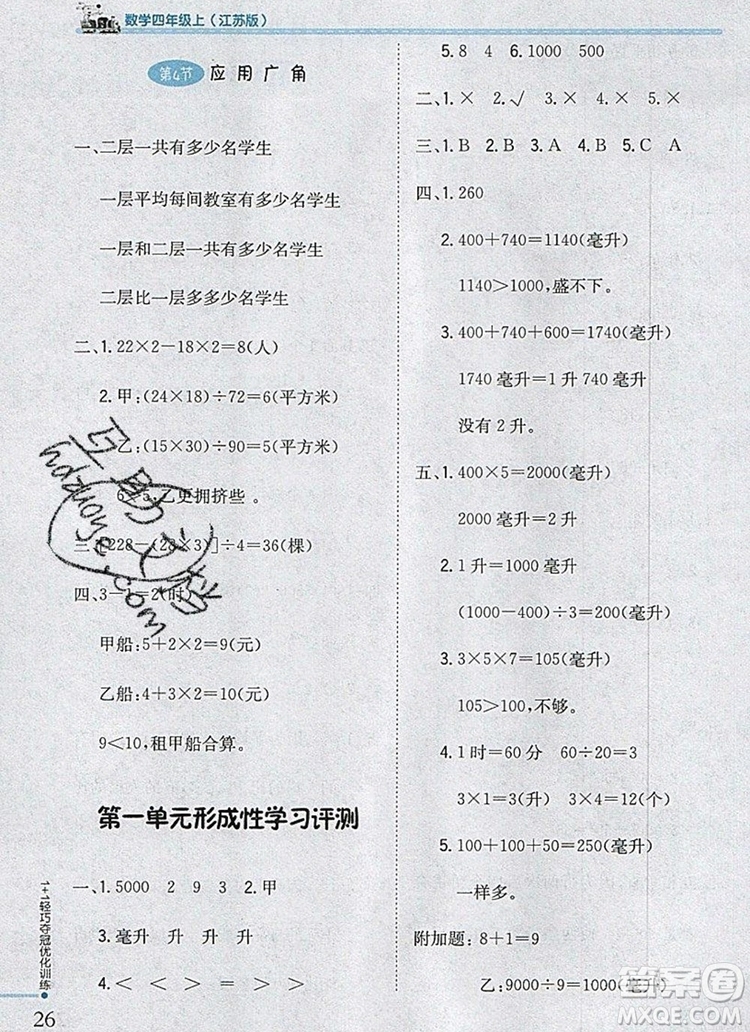 数学四年级上(江苏版)
第4节 应用广角
一、二层一共有多少名学生
一层平均每间教室有多少名学生
一层和二层一共有多少名学生
二层比一层多多少名学生
二、1.22×2-18×2=8(人)
2.甲:(24×18)÷72=6(平方米)
乙:(15×30)÷90=5(平方米)
6>5,乙更拥挤些。
三、[228-(28×3)]÷4=36(棵)
四、3-1=2(时)
甲船:5+2×2=9(元)
乙船:4+3×2=10(元)
9<10,租甲船合算。
第一单元形成性学习评测
一、1.5000 2 9 3 2.甲
3.毫升 升 升 升
4.< < > = > <
5.8 4 6.1000 500
二、1.× 2.√ 3.× 4.× 5.×
三、1.B 2.B 3.A 4.B 5.C A
四、1.260
2.400+740=1140(毫升)
1140>1000,盛不下。
3.400+740+600=1740(毫升)
1740毫升=1升740毫升
没有2升。
五、1.400×5=2000(毫升)
2000毫升=2升
2.1升=1000毫升
(1000-400)÷3=200(毫升)
3.3×5×7=105(毫升)
105>100,不够。
4.1时=60分 60÷20=3
3×1=3(升) 3÷1=3(杯)
5.100+100+50=250(毫升)
一样多。
附加题:8+1=9
乙:9000÷9=1000(毫升)
1+1轻巧夺冠优化训练
26
互助文档
hdzuoye.com
答案圈
MXQE.COM